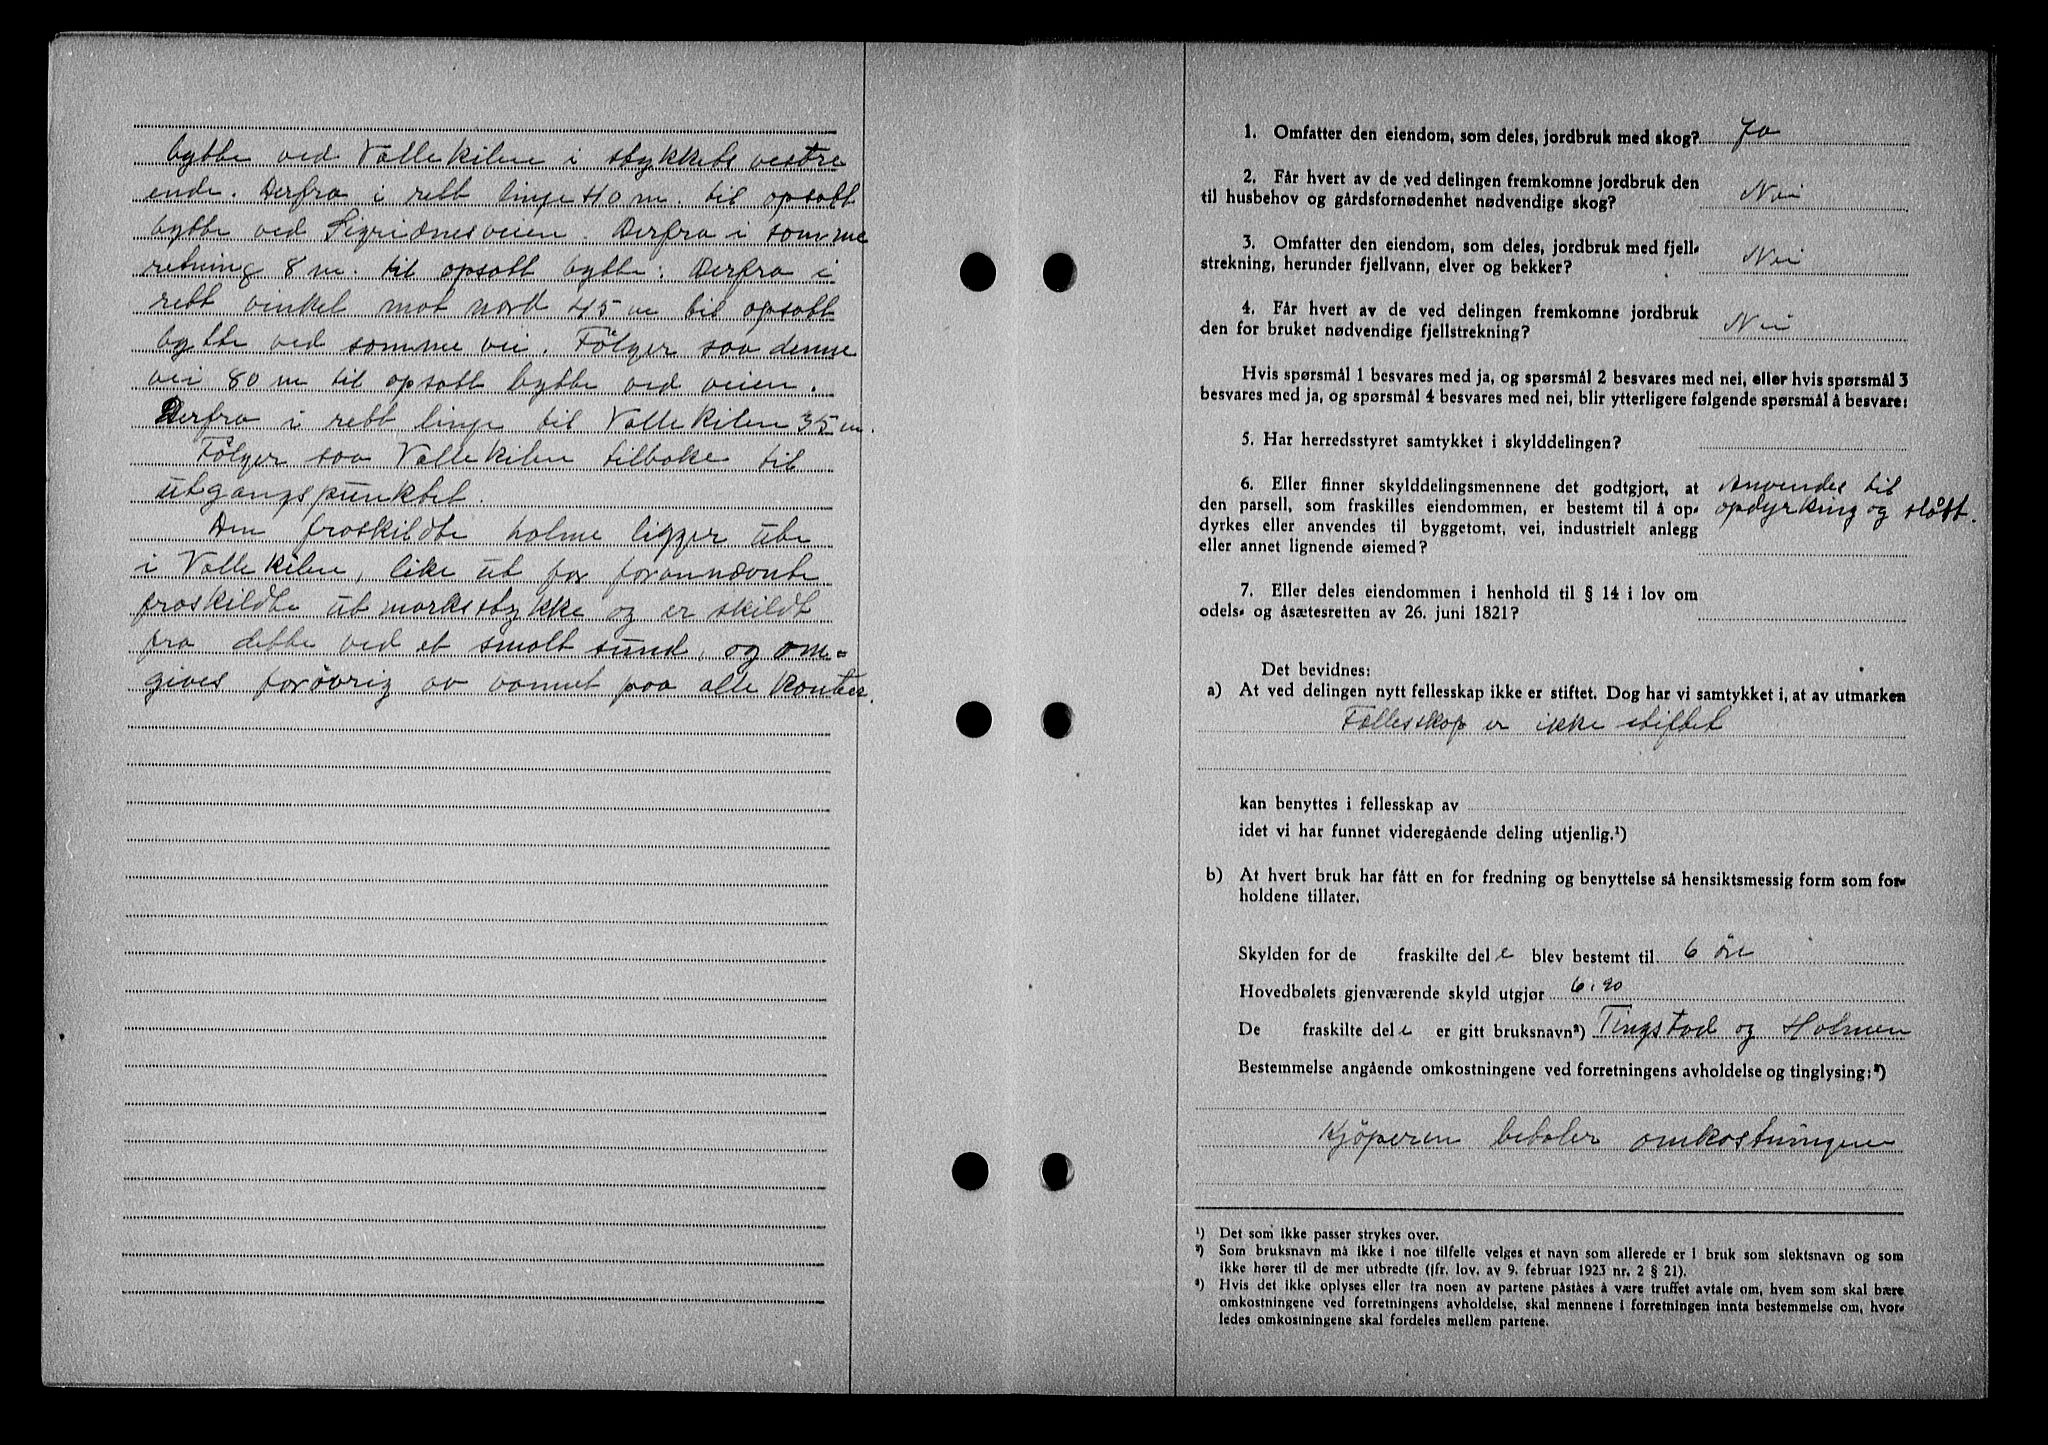 bytte ved Vallekilen i stykkets vestre
ende. Derfra i rett linje 40 m. til opsatt
bytte ved Sigridnesveien. Derfra i samme
retning 8 m. til opsatt bytte. Derfra i
rett vinkel mot nord 45 m til opsatt
bytte ved samme vei. Følger saa denne
vei 80 m til opsatt bytte ved veien.
Derfra i rett linje til Vallekilen 35 m.
Følger saa Vallekilen tilbake til
utgangspunktet.
Den fraskildte holme ligger ute
i Vallekilen, like ut for forannævnte
fraskildte utmarksstykke og er skildt
fra dette ved et smalt sund, og om-
gives forøvrig av vannet paa alle kanter.
1. Omfatter den eiendom, som deles, jordbruk med skog? Ja
2. Får hvert av de ved delingen fremkomne jordbruk den
til husbehov og gårdsfornødenhet nødvendige skog? Nei
3. Omfatter den eiendom, som deles, jordbruk med fjell-
strekning, herunder fjellvann, elver og bekker? Nei
4. Får hvert av de ved delingen fremkomne jordbruk
den for bruket nødvendige fjellstrekning? Nei
Hvis spørsmål 1 besvares med ja, og spørsmål 2 besvares med nei, eller hvis spørsmål 3
besvares med ja, og spørsmål 4 besvares med nei, blir ytterligere følgende spørsmål å besvare:
5. Har herredsstyret samtykket i skylddelingen?
6. Eller finner skylddelingsmennene det godtgjort, at
den parsell, som fraskilles eiendommen, er bestemt til å op-
dyrkes eller anvendes til byggetomt, vei, industrielt anlegg
eller annet lignende øiemed?
Anvendes til
opdyrking og slått.
7. Eller deles eiendommen i henhold til § 14 i lov om
odels- og åsætesretten av 26. juni 1821?
Det bevidnes:
a) At ved delingen nytt fellesskap ikke er stiftet. Dog har vi samtykket i, at av utmarken
Fellesskap er ikke stiftet
kan benyttes i fellesskap av
idet vi har funnet videregående deling utjenlig.¹)
b) At hvert bruk har fått en for fredning og benyttelse så hensiktsmessig form som for-
holdene tillater.
Skylden for de fraskilte del e blev bestemt til 6 øre
Hovedbølets gjenværende skyld utgjør 6.90
De fraskilte del e er gitt bruksnavn²) Tingstad og Holmen
Bestemmelse angående omkostningene ved forretningens avholdelse og tinglysing:³)
Kjøperen betaler omkostningene
¹) Det som ikke passer strykes over.
²) Som bruksnavn må ikke i noe tilfelle velges et navn som allerede er i bruk som slektsnavn og som
ikke hører til de mer utbredte (jfr. lov. av 9. februar 1923 nr. 2 § 21).
³) Hvis det ikke oplyses eller fra noen av partene påståes å være truffet avtale om, hvem som skal bære
omkostningene ved forretningens avholdelse, skal mennene i forretningen innta bestemmelse om, hvor-
ledes omkostningene skal fordeles mellem partene.